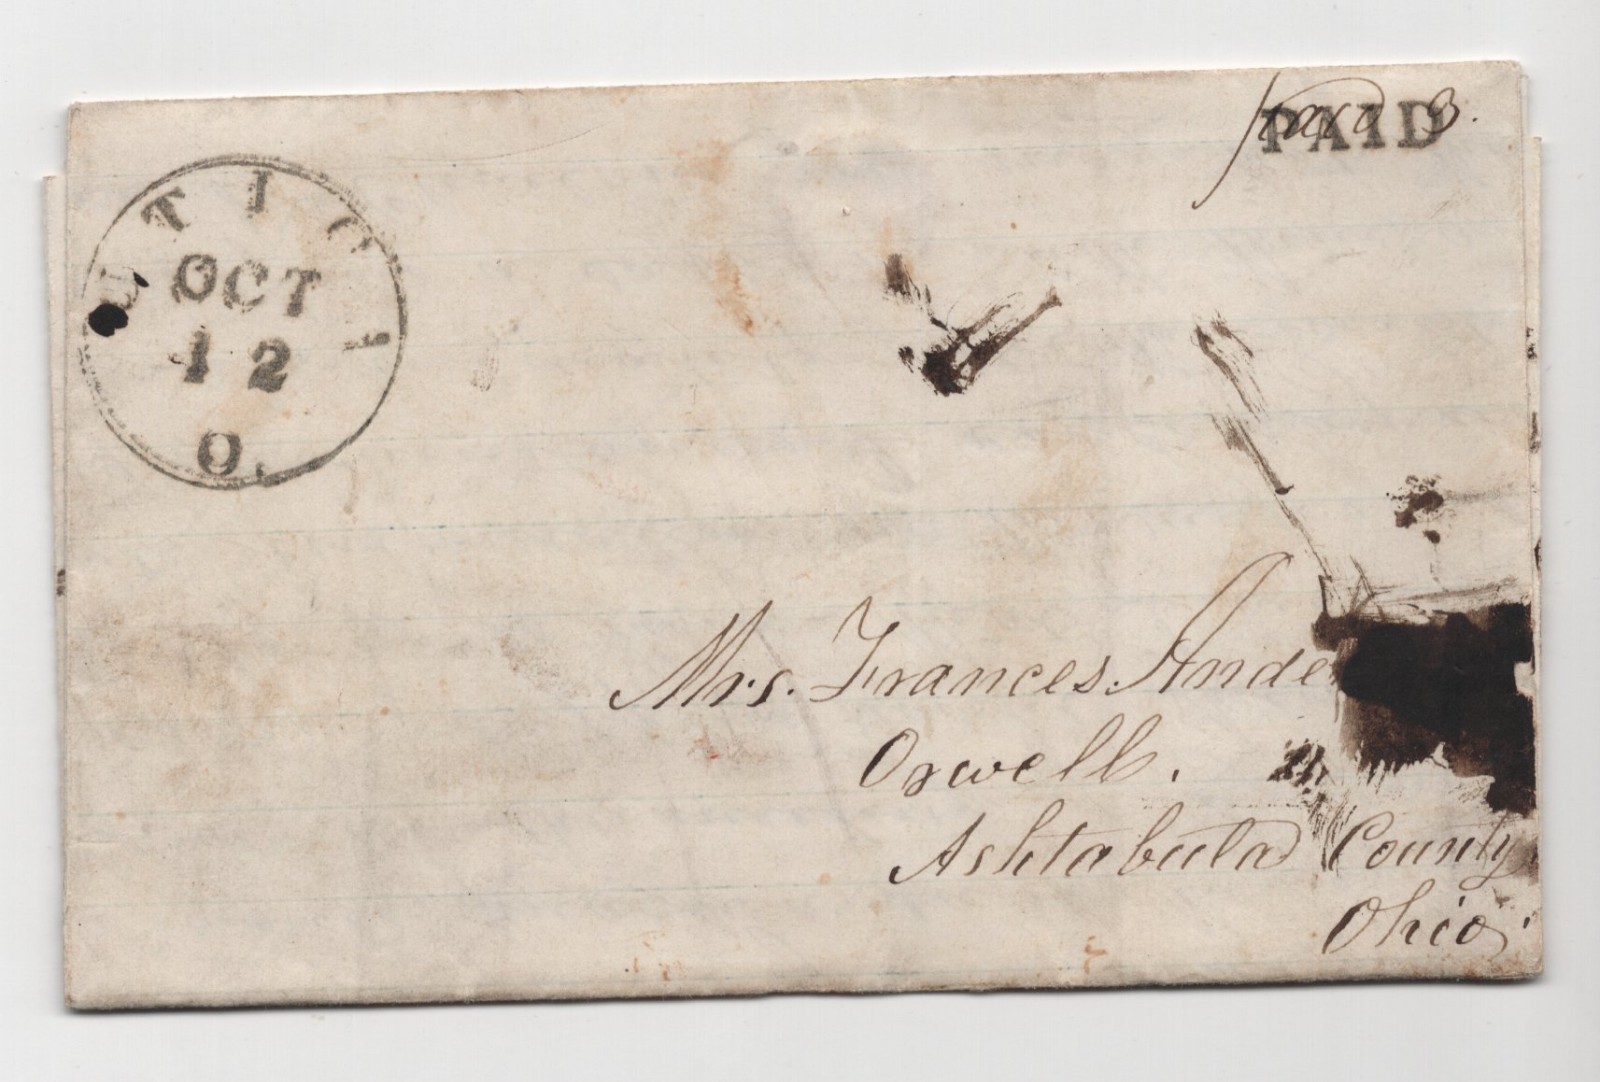 paid 3.
PAID
UTICA
OCT
12
O.
Mrs. Frances Ande
Orwell.
Ashtabula County
Ohio